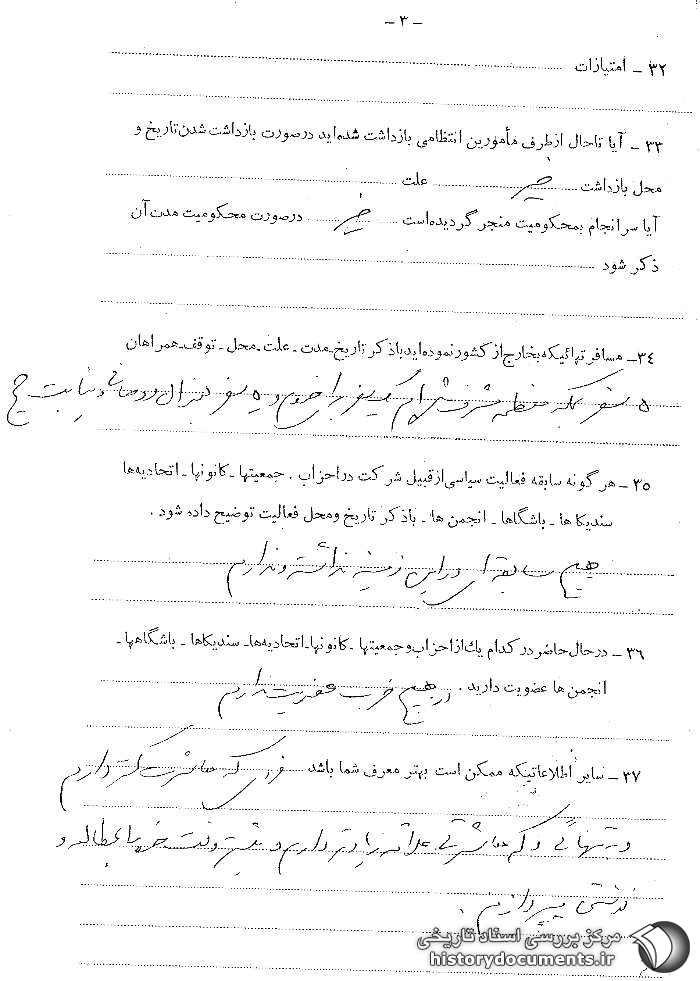 - ۳ -
۳۲ - امتیازات
۳۳ - آیا تاحال ازطرف مأمورین انتظامی بازداشت شده‌اید درصورت بازداشت شدن تاریخ و
محل بازداشت خیر علت
آیا سرانجام بمحکومیت منجر گردیده‌است خیر درصورت محکومیت مدت آن
ذکر شود
۳۴ - مسافرتهائیکه بخارج از کشور نموده‌اید باذکر تاریخ - مدت - علت - محل - توقف - همراهان
۵ سفر بمکه معظمه مشرف شده‌ام یک سفر برای خودم و سفر نیابت حج
۳۵ - هرگونه سابقه فعالیت سیاسی از قبیل شرکت دراحزاب ، جمعیتها - کانونها - اتحادیه‌ها
سندیکا ها - باشگاها - انجمن ها - باذکر تاریخ ومحل فعالیت توضیح داده شود .
هیچ سابقه ای در این زمینه نداشته و ندارم
۳۶ - درحال حاضر در کدام یك از احزاب و جمعیتها - کانونها - اتحادیه‌ها - سندیکاها - باشگاهها -
انجمن ها عضویت دارید . در هیچ حزب عضویت ندارم
۳۷ - سایر اطلاعاتیکه ممکن است بهتر معرف شما باشد فردی که معاشرت کمتر دارم
و به تنهائی و کم معاشرتی علاقه زیادتر دارم و بیشتر وقت خود را بمطالعه و
نوشتن میپردازم .
مرکز بررسی اسناد تاریخی
historydocuments.ir